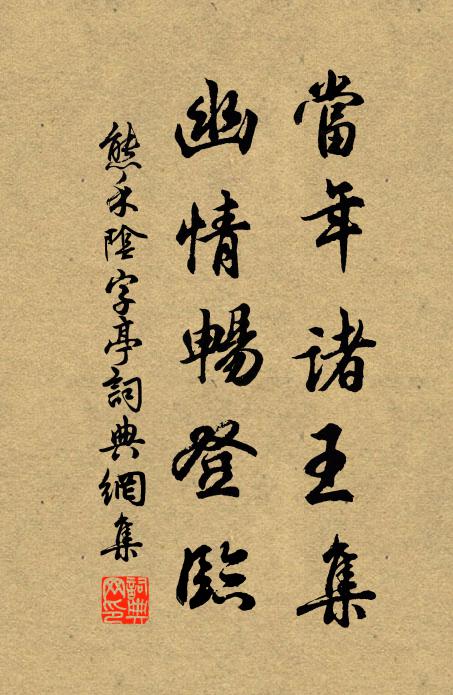 當年諸王集
幽情暢登臨
熊禾陰字亭詞典網集
詞典网印